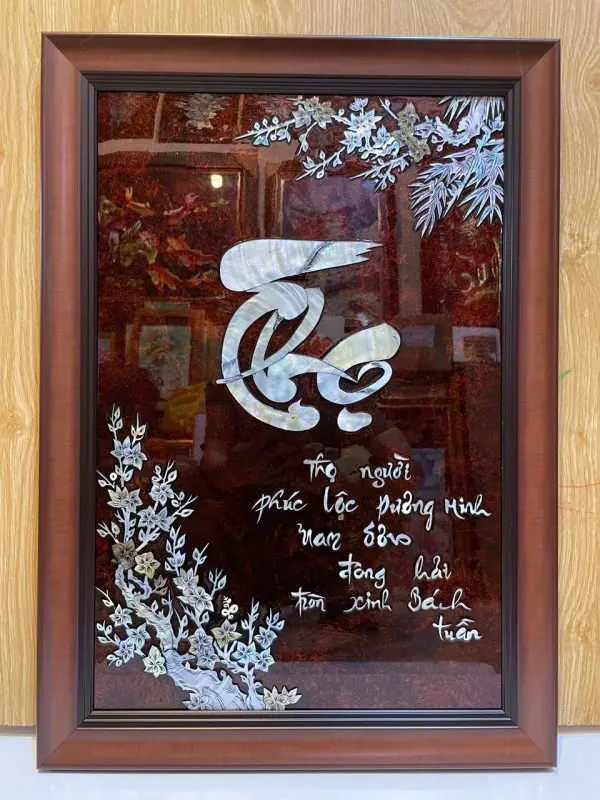 Thọ
Thọ người
phúc lộc Dương Minh
Nam Sơn
đông hải
tròn xinh Bách
tuần